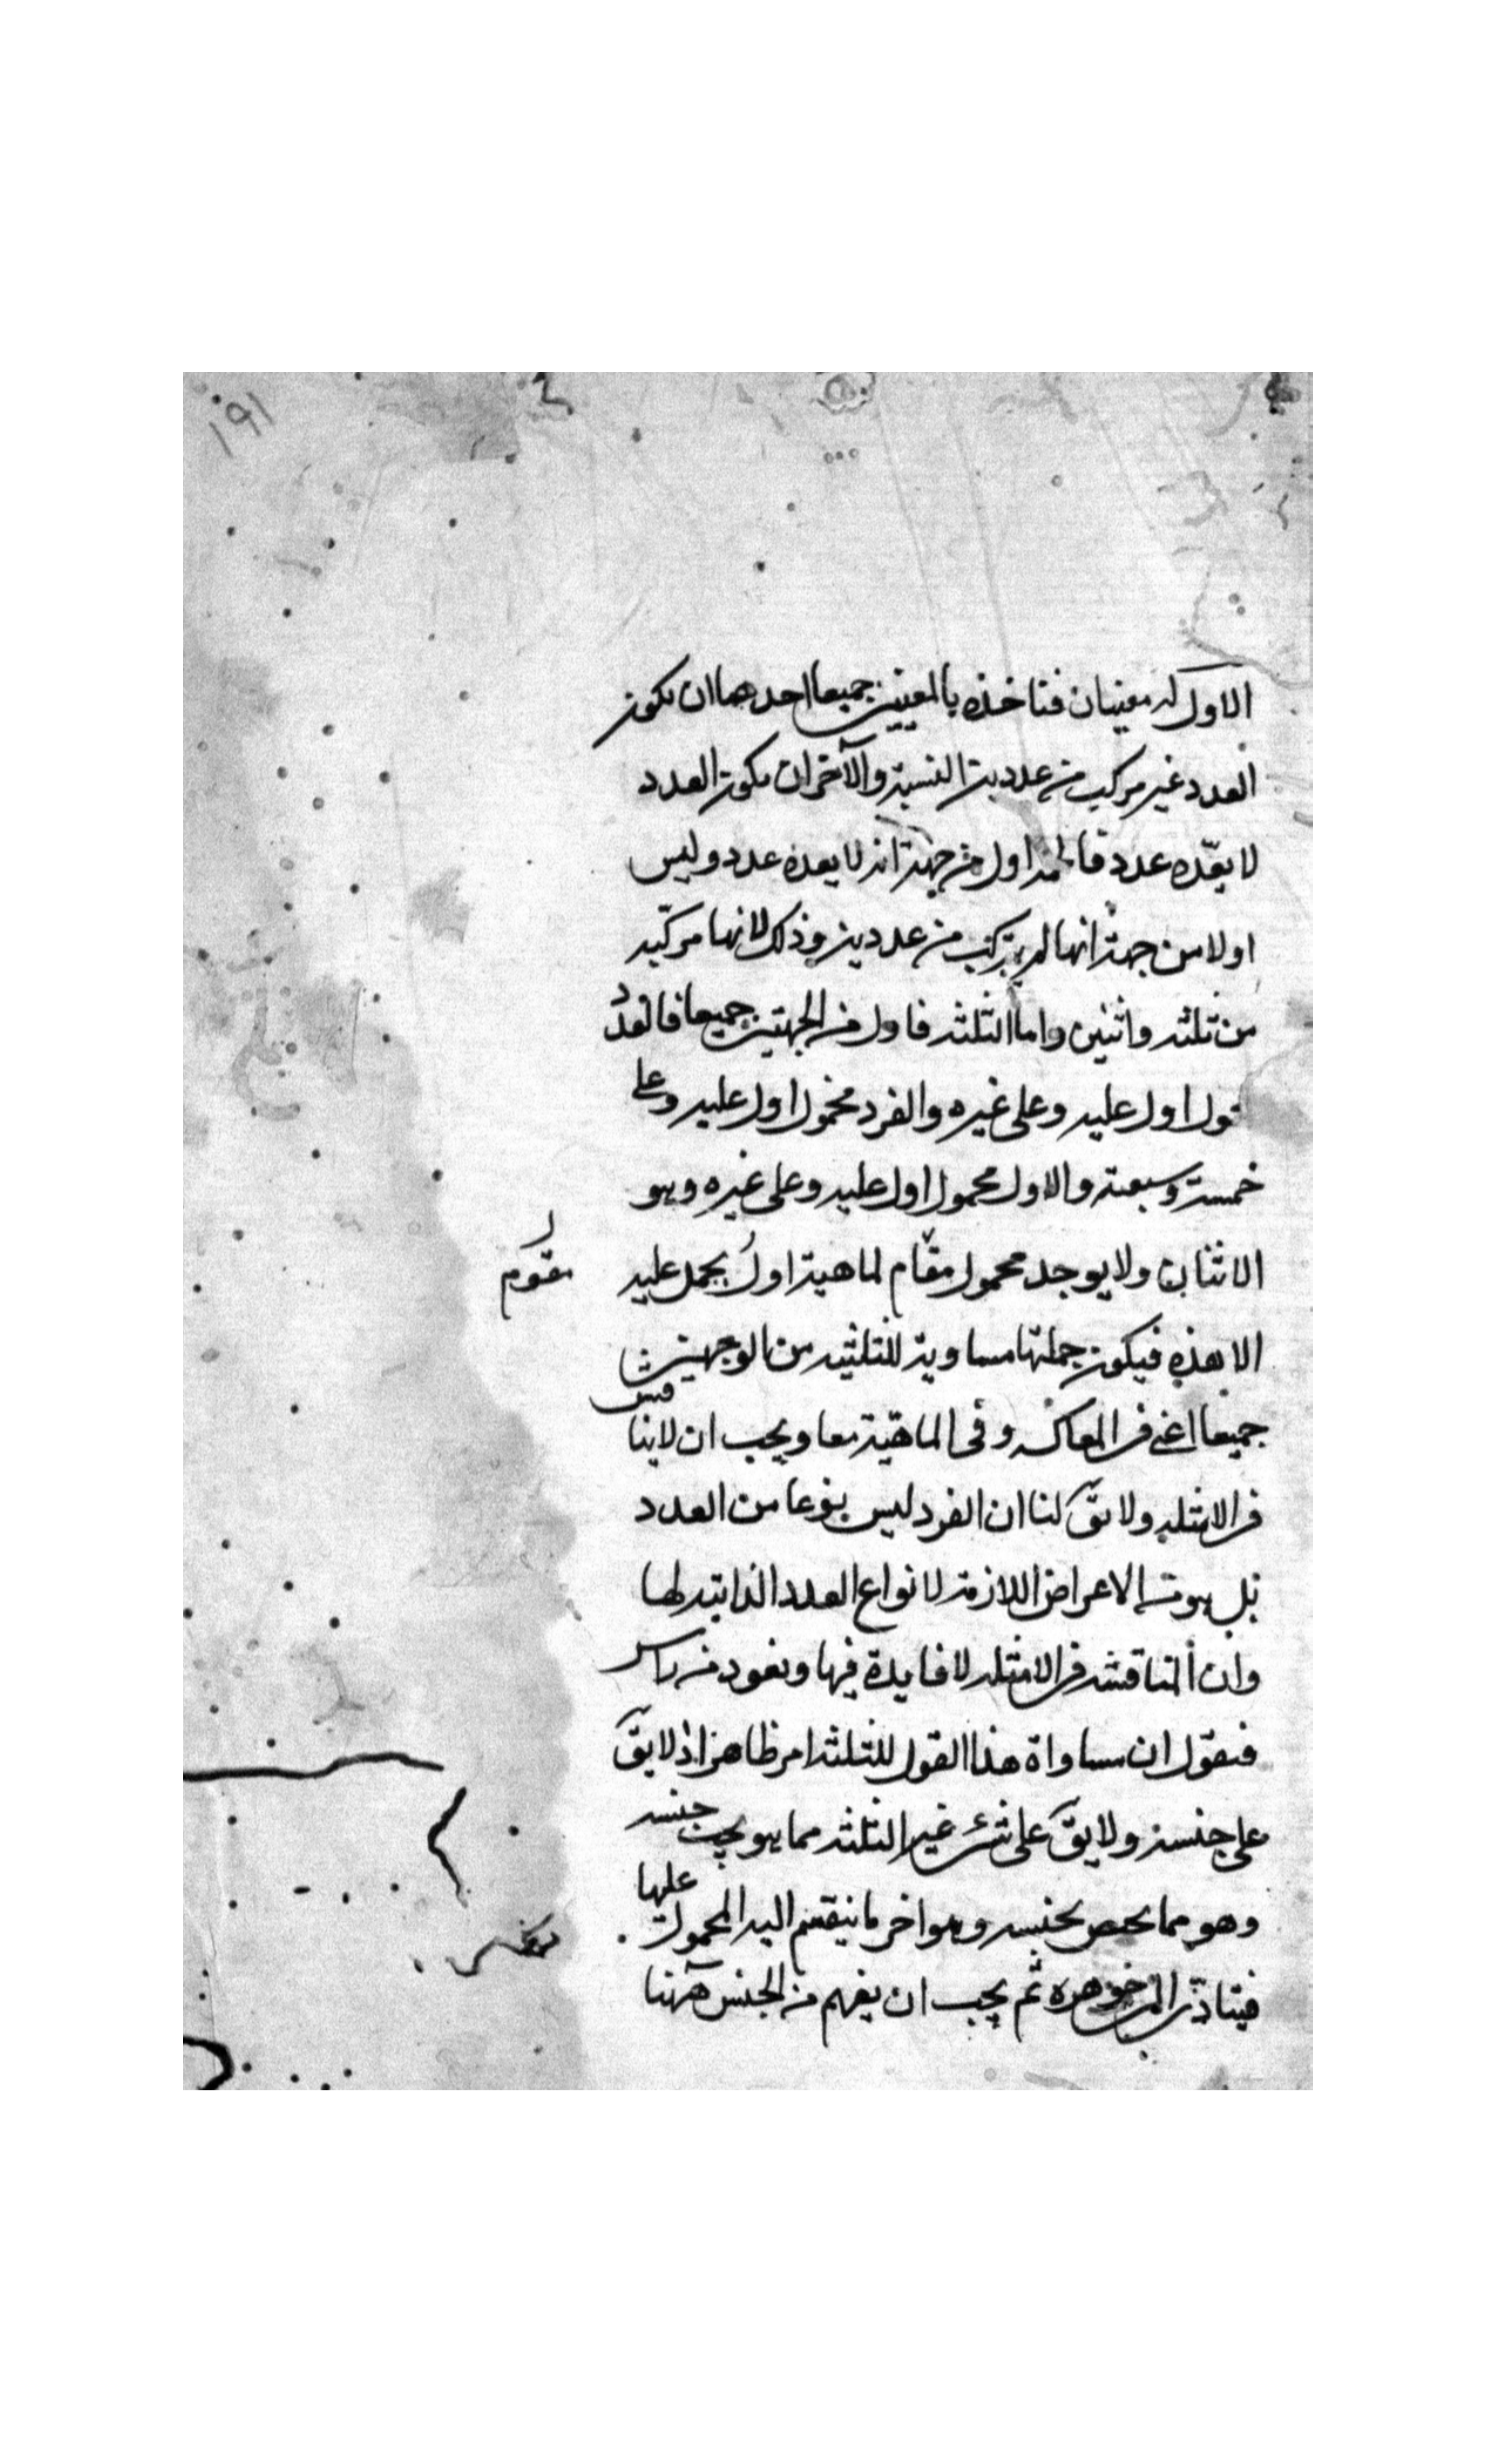 ١٩١
الاول له معنيان فناخذه بالمعنيين جميعا احدهما ان يكون
العدد غير مركب من عددين النسبة والآخر ان يكون العدد
لا يعدّه عدد فالخمسة اول من جهة انه لا يعده عدد وليس
اولا من جهة انها لم يتركب من عددين وذلك لانها مركبة
من ثلثة واثنين واما الثلثة فاول من الجهتين جميعا فالعدد
اول عليه وعلى غيره والفرد محمول اول عليه وعلى
خمسة وسبعة والاول محمول اول عليه وعلى غيره وهو
الاثنان ولا يوجد محمول مقام لماهية اول يحمل عليه
مقوم
الا هذه فيكون جملتها مساوية للثلثة من الوجهين
جميعا اعنى فى المعاكسة وفى الماهية معا ويجب ان لا يناقش
فى الامثلة ولا يقَ لنا ان الفرد ليس بنوعا من العدد
بل هو من الاعراض اللازمة لانواع العدد الذاتية لها
وان المناقشة فى الامثلة لا فايدة فيها ونعود من راس
فنقول ان مساواة هذا القول للثلثة امر ظاهر اذ لا يقَ
على جنسه ولا يقَ على شئ غير الثلثة مما هو تحت جنسه
وهو مما يختص بجنسه وهو اخر ما ينقسم اليه المحمول عليها
جوهره ثم يجب ان يفهم من الجنس ههنا